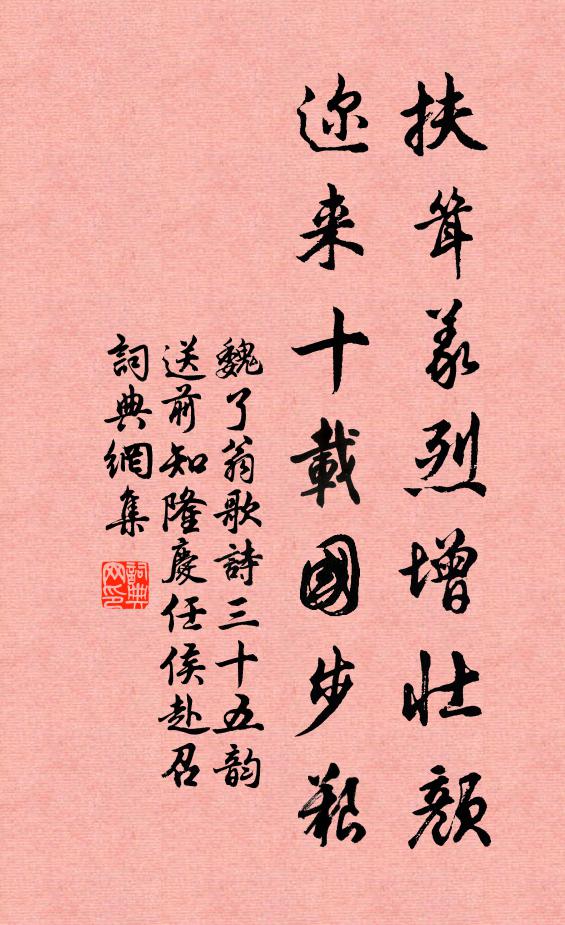 扶耸義烈增壮顔
迩来十載國步艱
魏了翁歌詩三十五韵
送前知隆慶任侯赴召
詞典網集
詞典网印